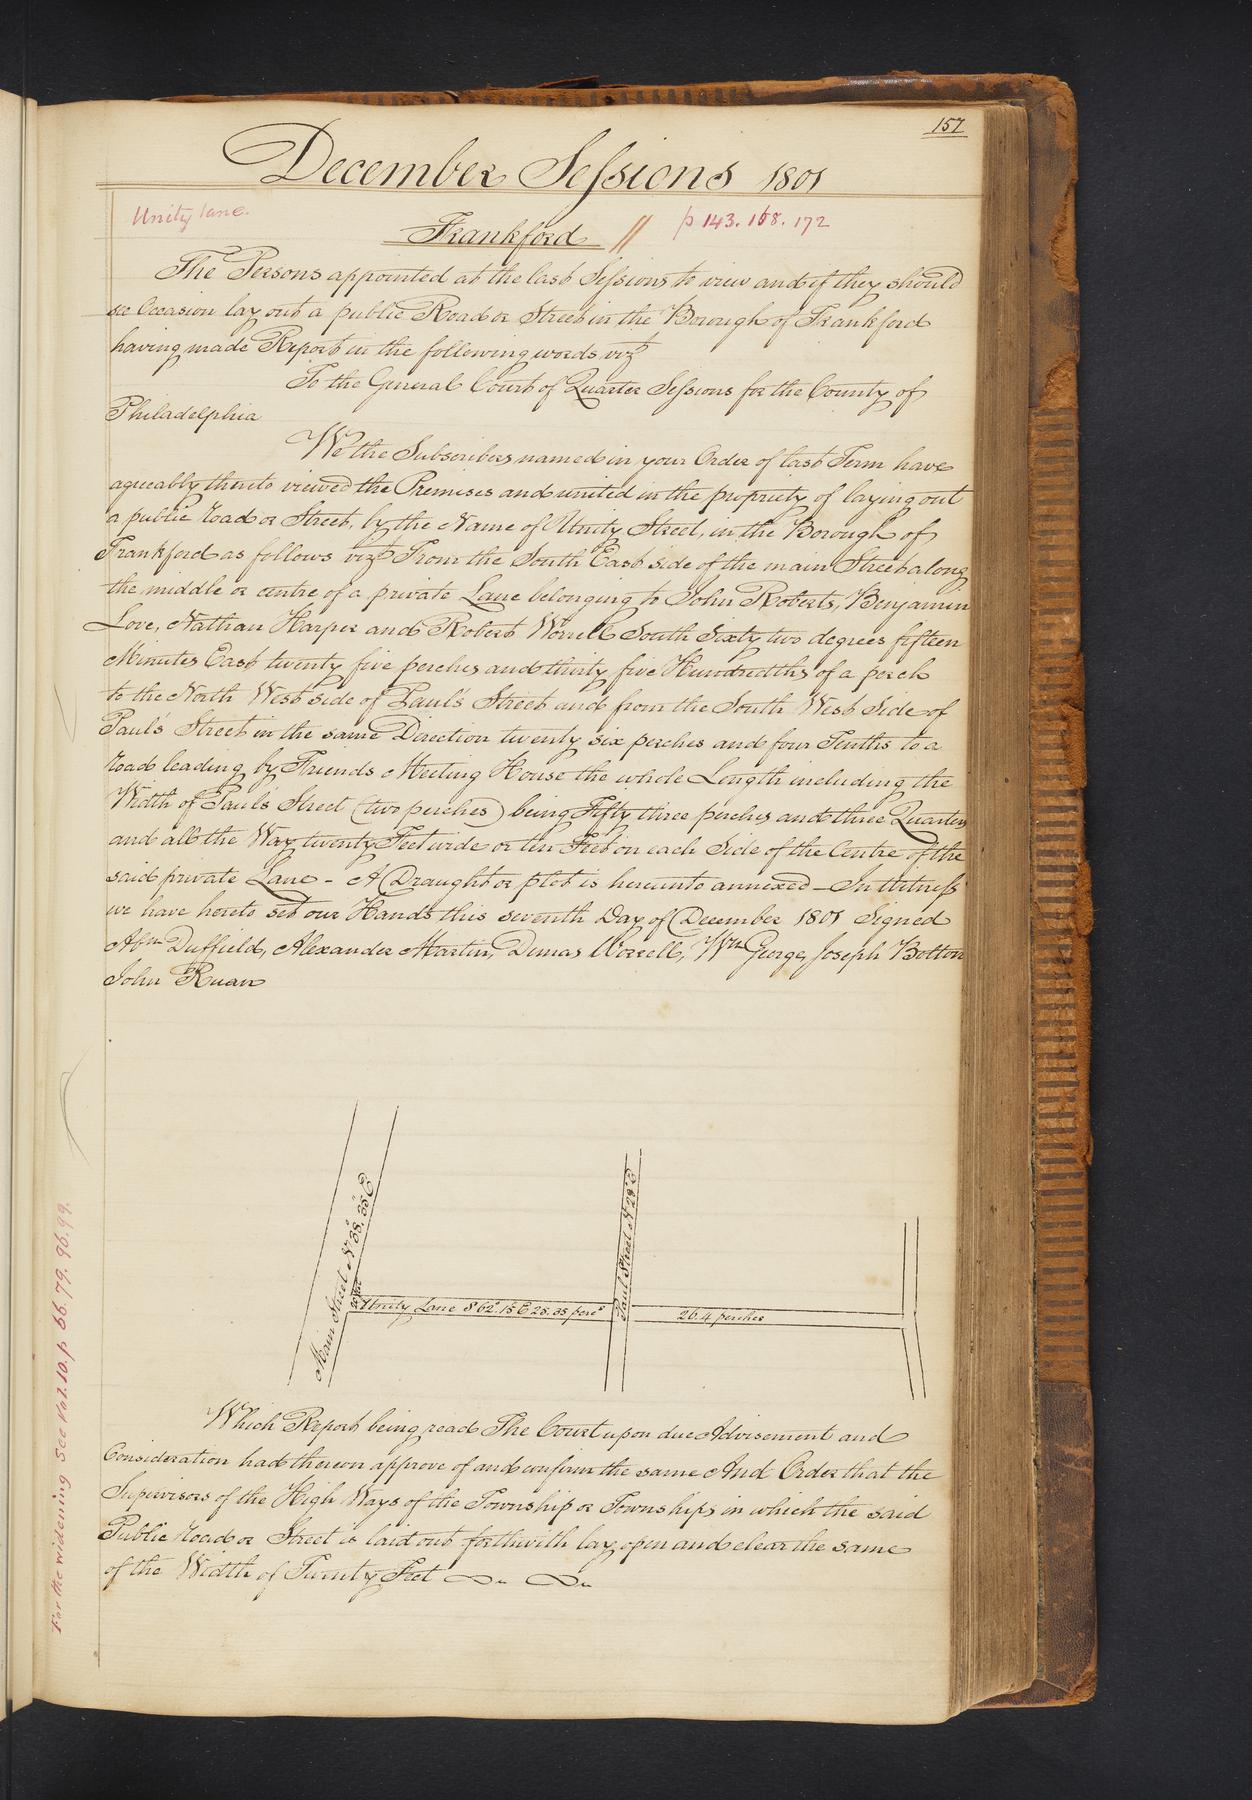 157
December Sessions 1801
Unity lane.
Frankford // p 143. 168. 172
The Persons appointed at the last Sessions to view and if they should
see Occasion lay out a public Road or Street in the Borough of Frankford
having made Report in the following words vizt
To the General Court of Quarter Sessions for the County of
Philadelphia
We the Subscribers named in your Order of last Term have
agreeably thereto viewed the Premises and united in the propriety of laying out
a public road or Street, by the Name of Unity Street, in the Borough of
Frankford as follows vizt From the South East side of the main Street along
the middle or centre of a private Lane belonging to John Roberts, Benjamin
Love, Nathan Harper and Robert Worrell South Sixty two degrees fifteen
Minutes East twenty five perches and thirty five Hundredths of a perch
to the North West side of Paul's Street and from the South West Side of
Paul's Street in the same Direction twenty six perches and four Tenths to a
road leading by Friends Meeting House the whole Length including the
Width of Paul's Street (two perches) being Fifty three perches and three Quarters
and all the Way twenty Feet wide or ten Feet on each Side of the Centre of the
said private Lane - A Draught or plot is hereunto annexed - In Witness
we have hereto set our Hands this seventh Day of December 1801 Signed
Abm Duffield, Alexander Martin, Dumas Worrell, Wm George, Joseph Bolton
John Ruan
Main Street N 38°. 35" E
20 feet
Unity Lane S 62°. 15 E 25.35 perchs
Paul Street N 29° E
26.4 perches
Which Report being read The Court upon due Advisement and
Consideration had thereon approve of and confirm the same And Order that the
Supervisors of the High Ways of the Township or Townships in which the said
Public Road or Street is laid out forthwith lay open and clear the same
of the Width of Twenty Feet
For the widening See Vol. 10. p. 66. 79. 96. 99.